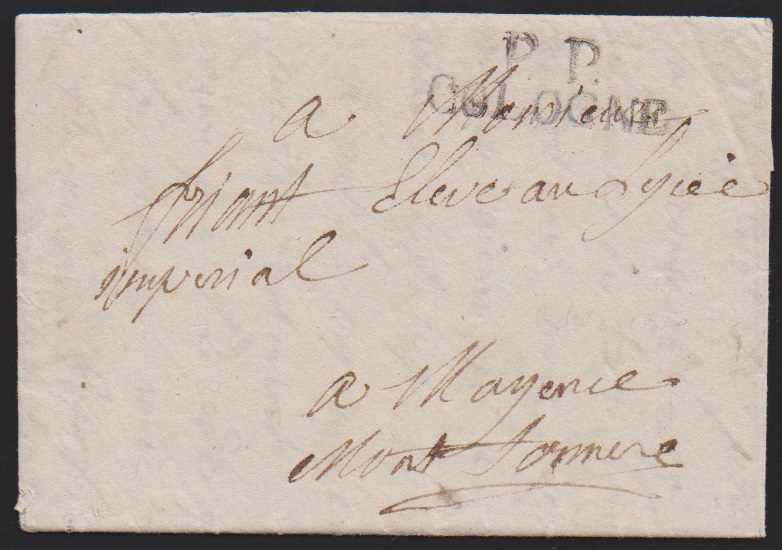 P. P.
COLOGNE
a Monsieur
friant Eleve au Lycée
imperial
a Mayence
Mont tonnere